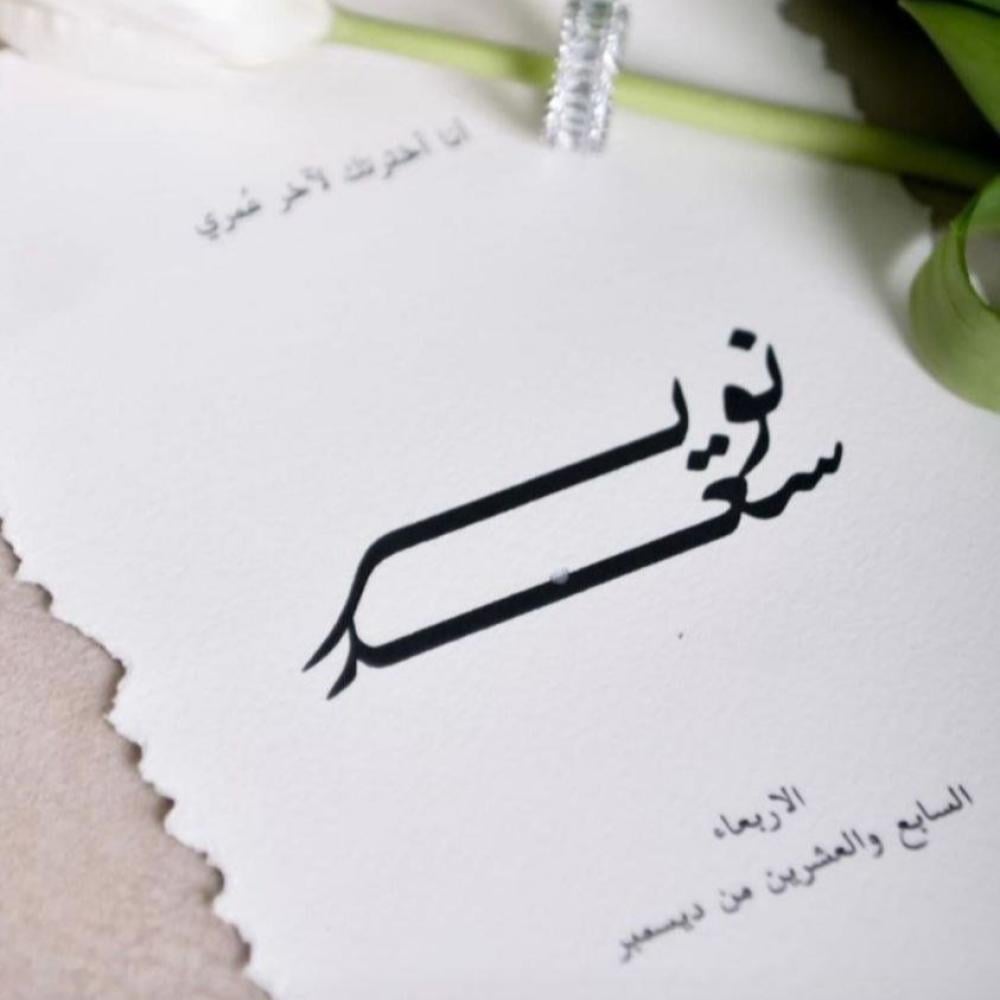 أنا أخترتك لآخر عُمري
نوير
سعد
الاربعاء
السابع والعشرين من ديسمبر